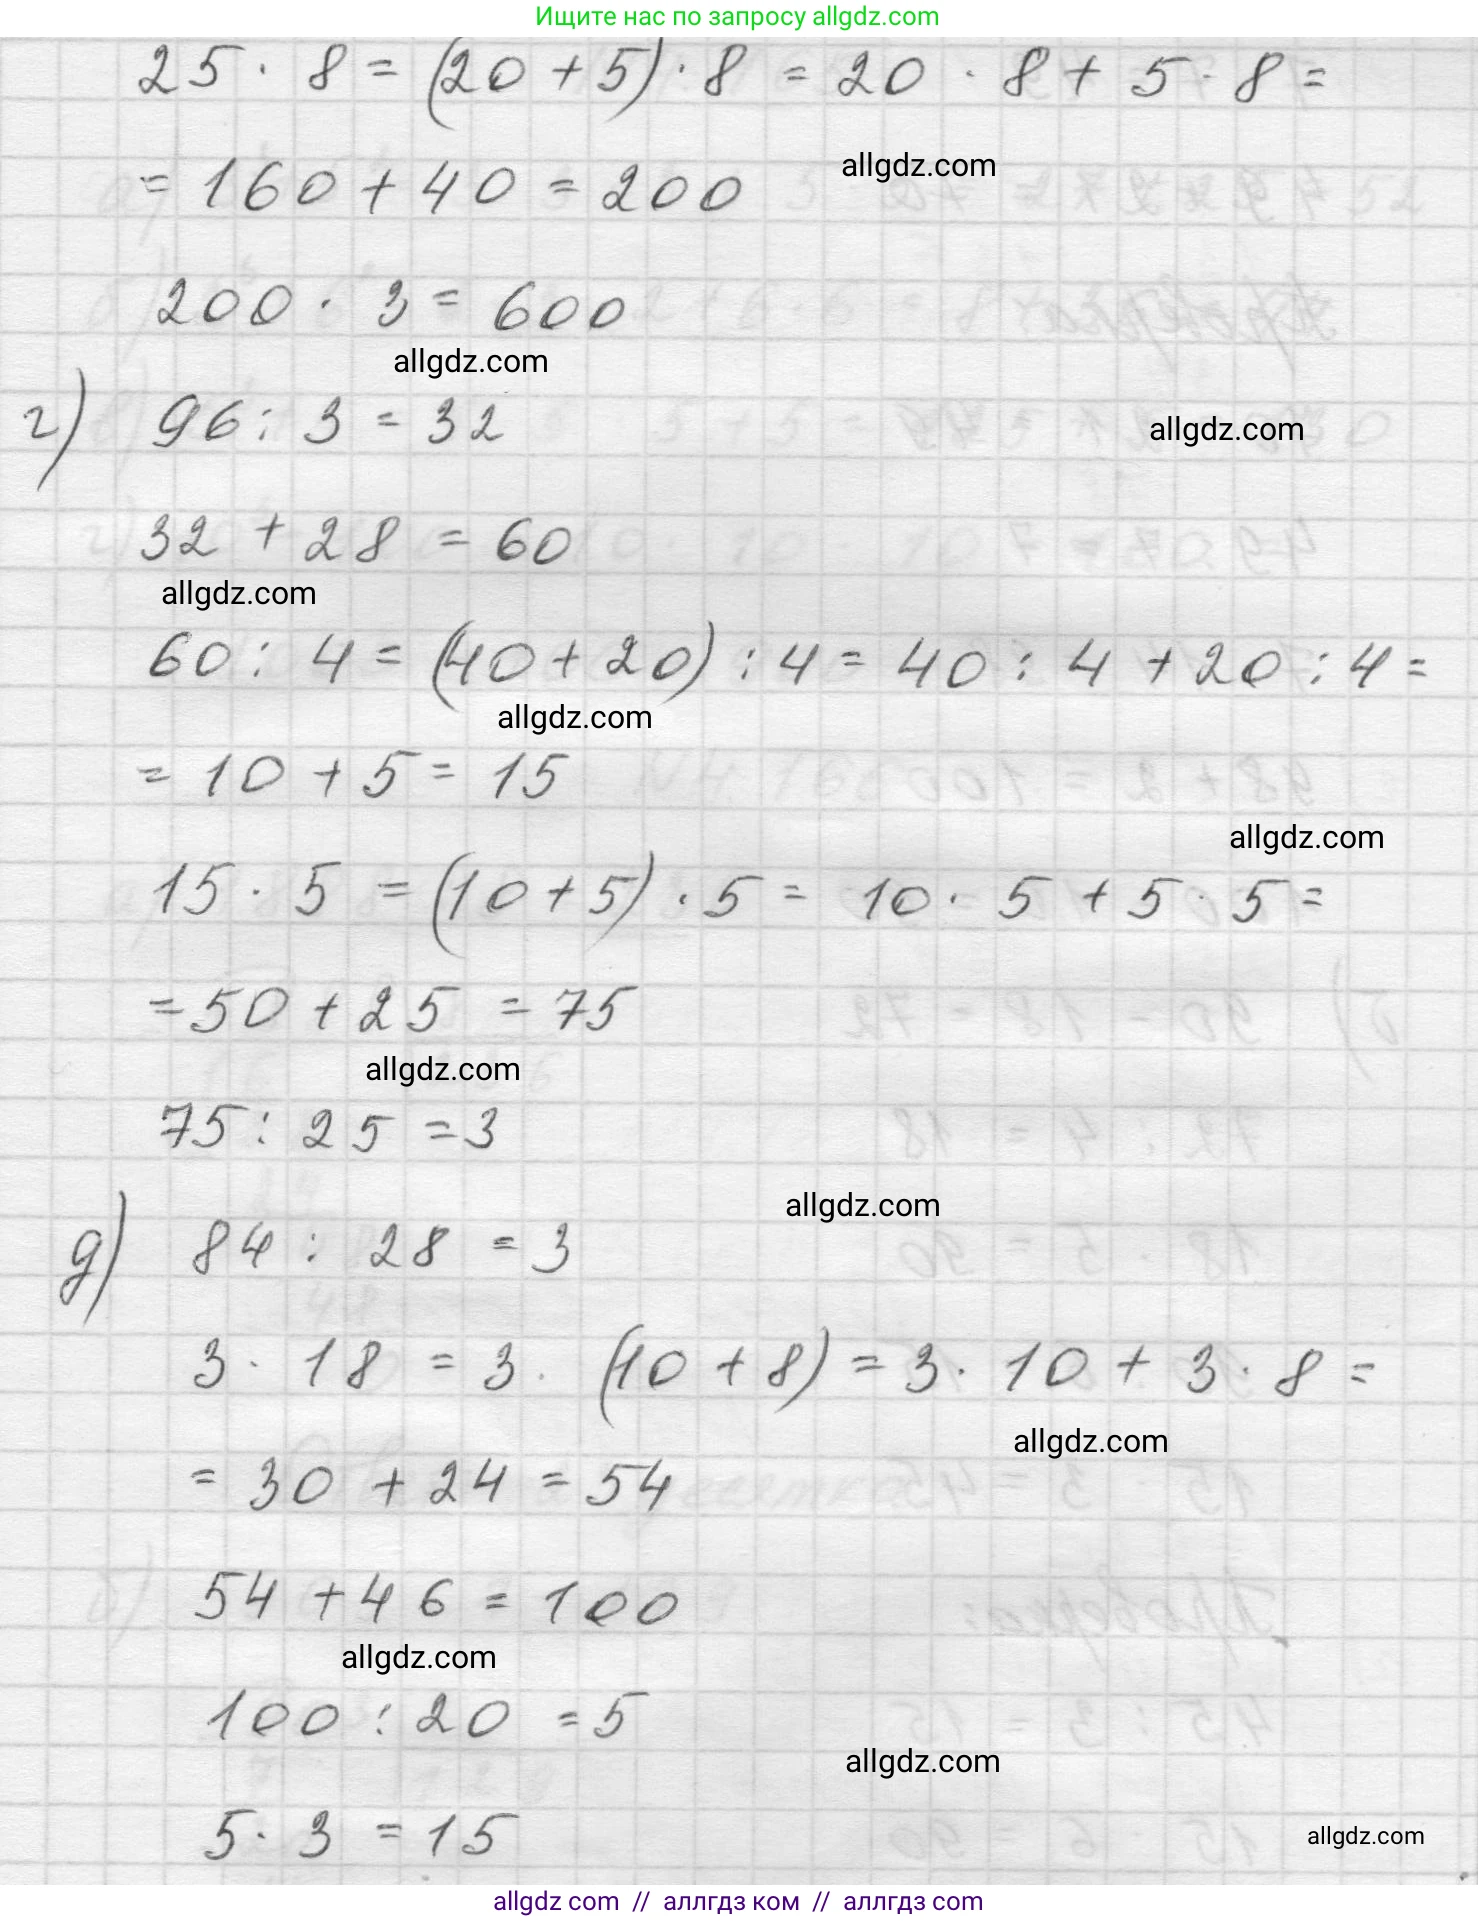 Ищите нас по запросу allgdz.com
25 · 8 = (20 + 5) · 8 = 20 · 8 + 5 · 8 =
allgdz.com
= 160 + 40 = 200
200 · 3 = 600
allgdz.com
г) 96 : 3 = 32
allgdz.com
32 + 28 = 60
allgdz.com
60 : 4 = (40 + 20) : 4 = 40 : 4 + 20 : 4 =
allgdz.com
= 10 + 5 = 15
allgdz.com
15 · 5 = (10 + 5) · 5 = 10 · 5 + 5 · 5 =
= 50 + 25 = 75
allgdz.com
75 : 25 = 3
allgdz.com
д) 84 : 28 = 3
3 · 18 = 3 · (10 + 8) = 3 · 10 + 3 · 8 =
allgdz.com
= 30 + 24 = 54
54 + 46 = 100
allgdz.com
100 : 20 = 5
allgdz.com
5 · 3 = 15
allgdz.com
allgdz com // аллгдз ком // аллгдз com